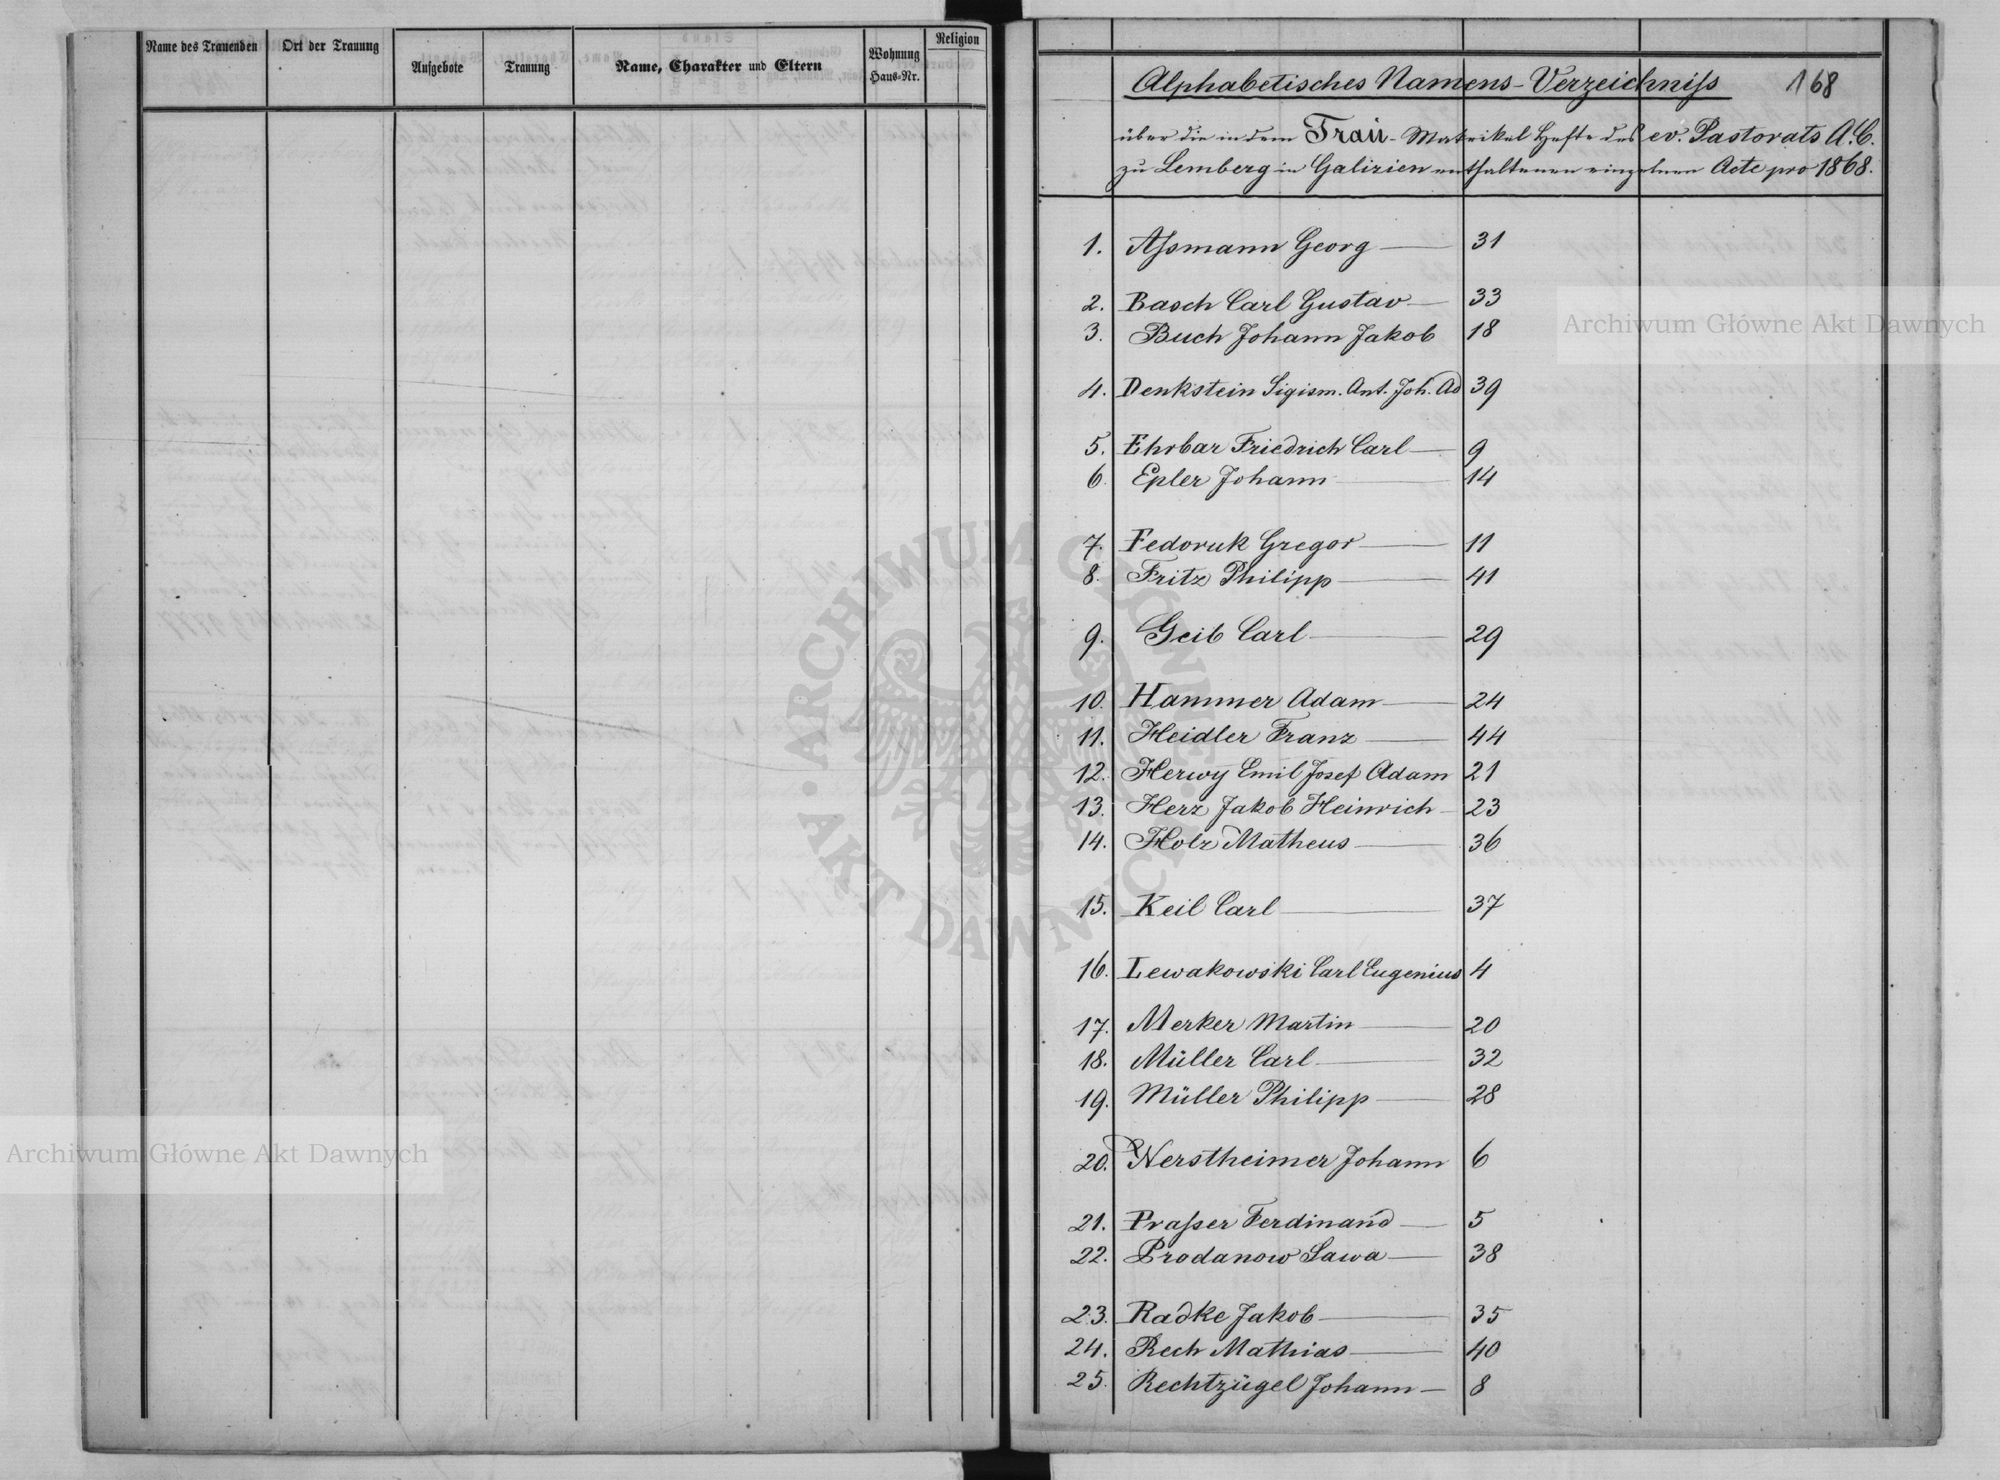 Name des Trauenden
Ort der Trauung
Aufgebote
Trauung
Name, Charakter und Eltern
Wohnung
Haus-Nr.
Religion
Alphabetisches Namens-Verzeichniſs 168
über die in dem Trau-Matrikel Hefte des ev. Pastorats A.C.
zu Lemberg in Galizien enthaltenen einzelnen Acte pro 1868.
1. Aſsmann Georg — 31
2. Basch Carl Gustav — 33
3. Buch Johann Jakob 18
4. Denkstein Sigism. Ant. Joh. Ad 39
5. Ehrbar Friedrich Carl — 9
6. Epler Johann — 14
7. Fedoruk Gregor — 11
8. Fritz Philipp — 41
9. Geib Carl — 29
10. Hammer Adam — 24
11. Heidler Franz — 44
12. Herwy Emil Josef Adam 21
13. Herz Jakob Heinrich — 23
14. Holz Matheus — 36
15. Keil Carl — 37
16. Lewakowski Carl Eugenius 4
17. Merker Martin — 20
18. Müller Carl — 32
19. Müller Philipp — 28
20. Nerstheimer Johann 6
21. Praſser Ferdinand — 5
22. Prodanow Sawa — 38
23. Radke Jakob — 35
24. Rech Mathias — 40
25. Rechtzügel Johann — 8
Archiwum Główne Akt Dawnych
Archiwum Główne Akt Dawnych
ARCHIWUM GŁÓWNE · AKT DAWNYCH ·